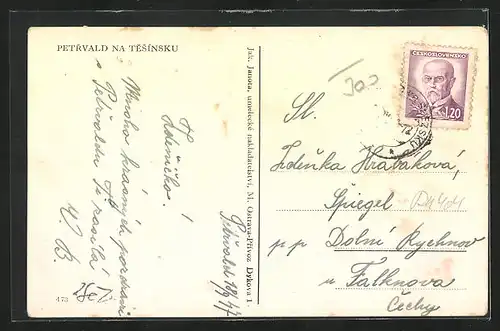 PETŘVALD NA TĚŠÍNSKU
Petřvald 10/9 47
Zdeničko!
Mnoho krásných pozdravů
z Petřvaldu Ti zasílá
V. B.
473
Jak. Janota, umělecké nakladatelství, M. Ostrava-Přívoz Dykova 1.
ČESKOSLOVENSKO
1.20
Sl.
Zdeňka Hrabáková,
Spiegel
p p Dolní Rychnov
u Falknova
Čechy